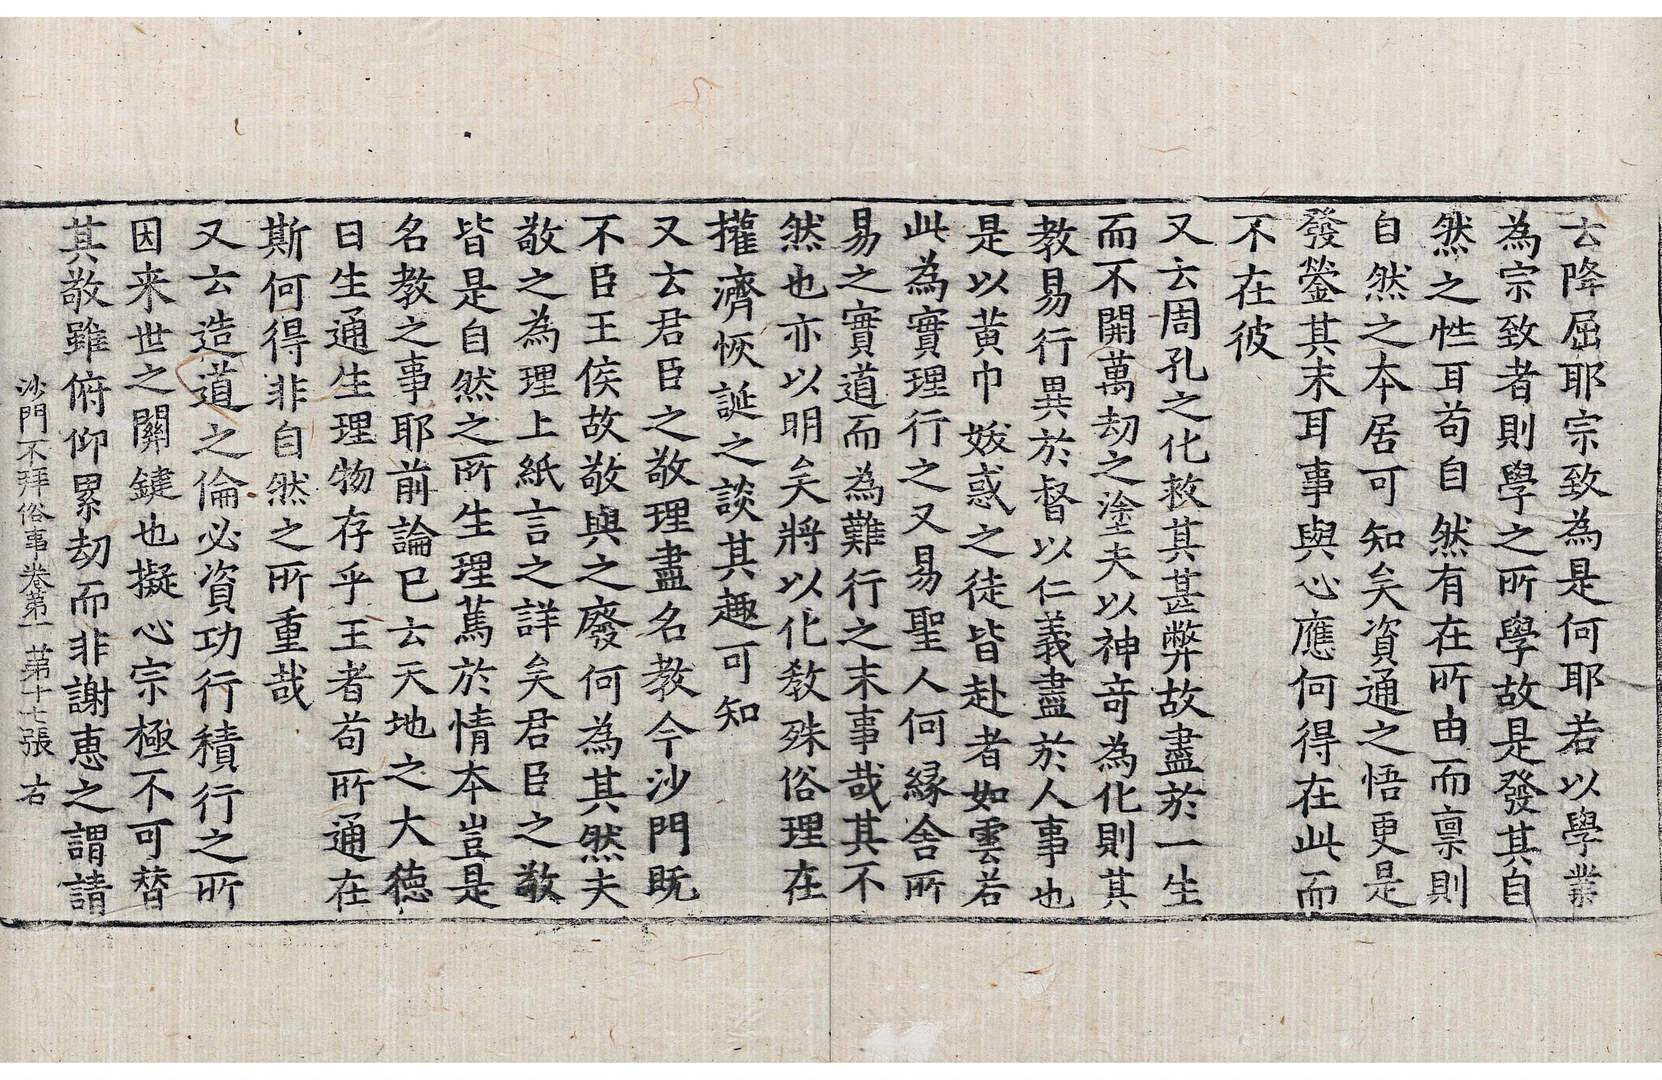 去降屈耶宗致為是何耶若以學業
為宗致者則學之所學故是發其自
然之性耳苟自然有在所由而稟則
自然之本居可知矣資通之悟更是
發瑩其末耳事與心應何得在此而
不在彼
又云周孔之化救其甚弊故盡於一生
而不開萬劫之塗夫以神竒為化則其
教易行異於督以仁義盡於人事也
是以黄巾妖惑之徒皆赴者如雲若
此為實理行之又易聖人何緣舍所
易之實道而為難行之末事哉其不
然也亦以明矣將以化教殊俗理在
攉濟恢誕之談其趣可知
又云君臣之敬理盡名教今沙門既
不臣王侯故敬與之廢何為其然夫
敬之為理上紙言之詳矣君臣之敬
皆是自然之所生理篤於情本豈是
名教之事耶前論已云天地之大徳
曰生通生理物存乎王者苟所通在
斯何得非自然之所重哉
又云造道之倫必資功行積行之所
因来世之關鍵也擬心宗極不可替
其敬雖俯仰累劫而非謝恵之謂請
沙門不拜俗事卷第一 第十七張 右